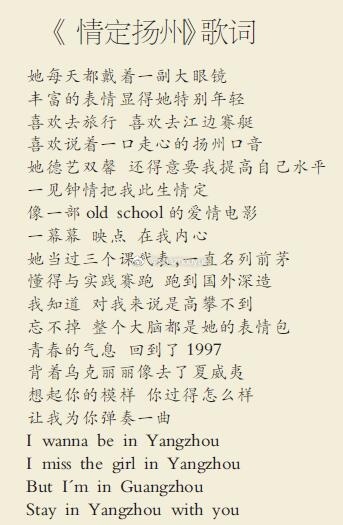 《情定扬州》歌词
她每天都戴着一副大眼镜
丰富的表情显得她特别年轻
喜欢去旅行 喜欢去江边赛艇
喜欢说着一口走心的扬州口音
她德艺双馨 还得意要我提高自己水平
一见钟情把我此生情定
像一部 old school 的爱情电影
一幕幕 映点 在我内心
她当过三个课代表,一直名列前茅
懂得与实践赛跑 跑到国外深造
我知道 对我来说是高攀不到
忘不掉 整个大脑都是她的表情包
青春的气息 回到了 1997
背着乌克丽丽像去了夏威夷
想起你的模样 你过得怎么样
让我为你弹奏一曲
I wanna be in Yangzhou
I miss the girl in Yangzhou
But I´m in Guangzhou
Stay in Yangzhou with you